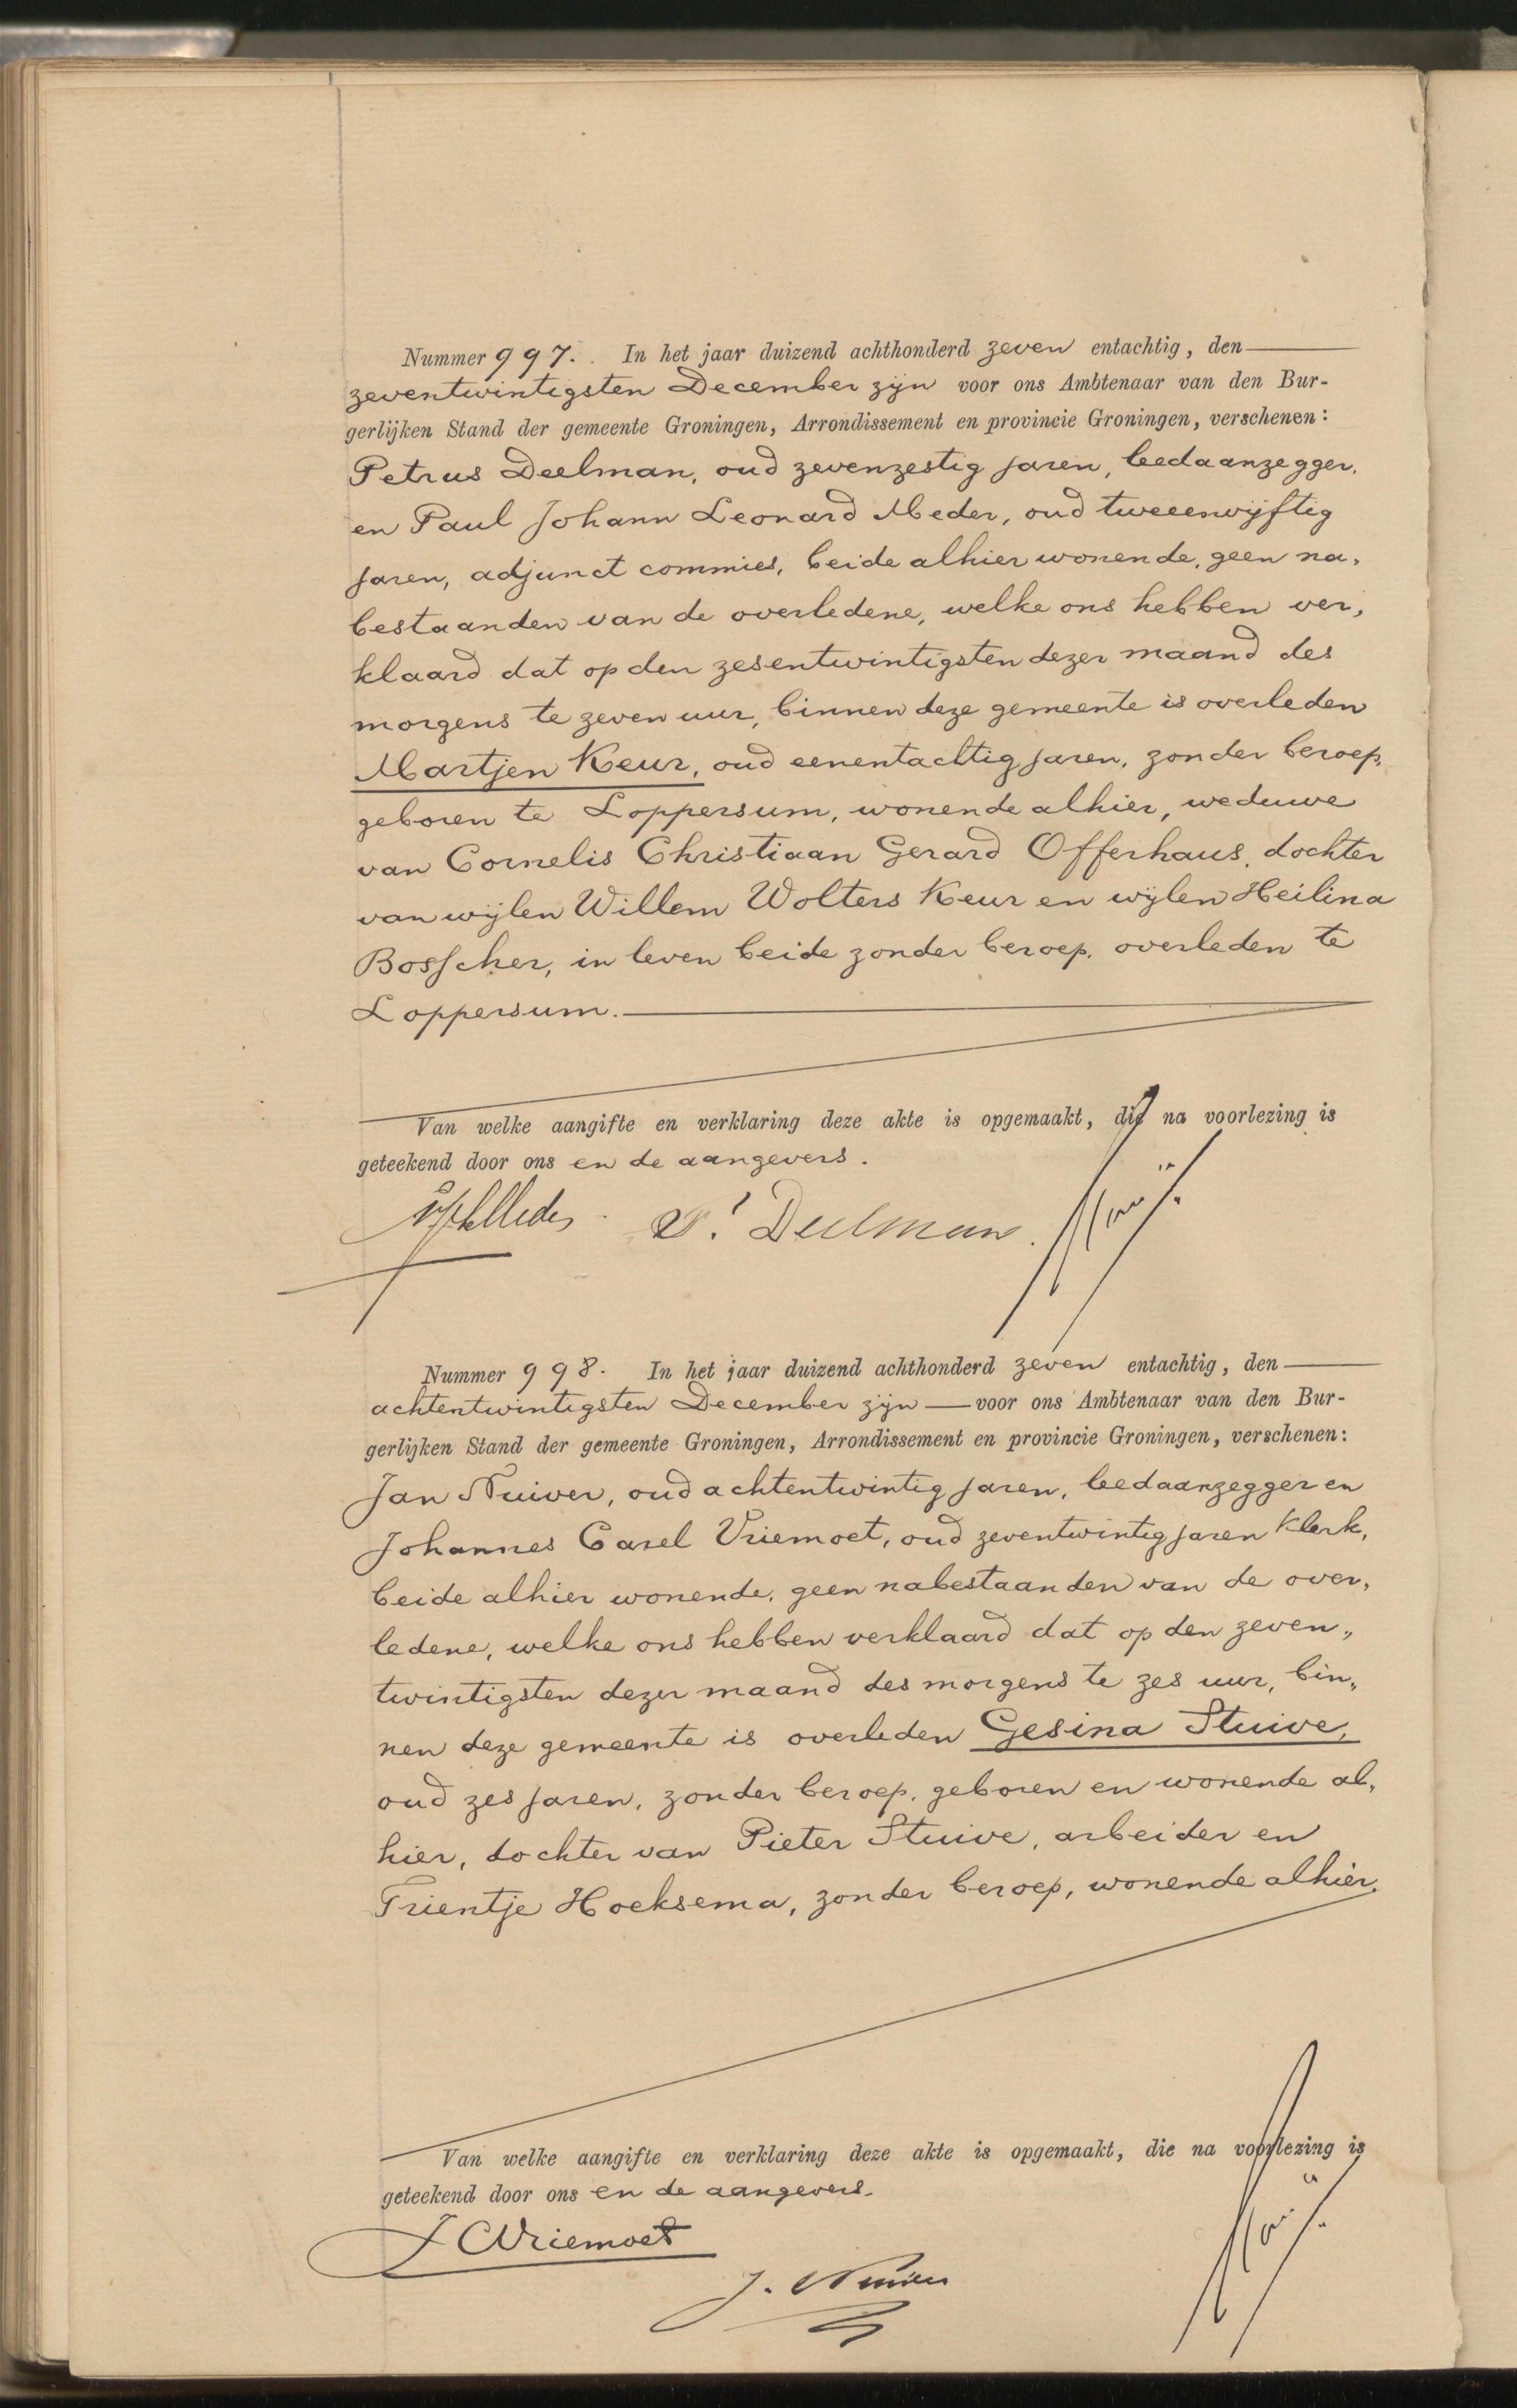 Nummer 997. In het jaar duizend achthonderd zeven entachtig, den
zeventwintigsten December zijn voor ons Ambtenaar van den Bur-
gerlijken Stand der gemeente Groningen, Arrondissement en provincie Groningen, verschenen:
Petrus Deelman, oud zevenzestig jaren, leedaanzegger,
en Paul Johann Leonard Meder, oud tweeenvijftig
jaren, adjunct commies, beide alhier wonende, geen na,
bestaanden van de overledene, welke ons hebben ver,
klaard dat op den zesentwintigsten dezer maand des
morgens te zeven uur, binnen deze gemeente is overleden
Martjen Keur, oud eenentachtig jaren, zonder beroep,
geboren te Loppersum, wonende alhier, weduwe
van Cornelis Christiaan Gerard Offerhaus, dochter
van wijlen Willem Wolters Keur en wijlen Heilina
Bosscher, in leven beide zonder beroep, overleden te
Loppersum.
Van welke aangifte en verklaring deze akte is opgemaakt, die na voorlezing is
geteekend door ons en de aangevers.
P. Deelman.
Nummer 998. In het jaar duizend achthonderd zeven entachtig, den
achtentwintigsten December zijn voor ons Ambtenaar van den Bur-
gerlijken Stand der gemeente Groningen, Arrondissement en provincie Groningen, verschenen:
Jan Nuiver, oud achtentwintig jaren, leedaanzegger en
Johannes Carel Vriemoet, oud zeventwintig jaren Klerk,
beide alhier wonende, geen nabestaanden van de over,
ledene, welke ons hebben verklaard dat op den zeven„
twintigsten dezer maand des morgens te zes uur, bin„
nen deze gemeente is overleden Gesina Stuive,
oud zes jaren, zonder beroep, geboren en wonende al,
hier, dochter van Pieter Stuive, arbeider en
Trientje Hoeksema, zonder beroep, wonende alhier.
Van welke aangifte en verklaring deze akte is opgemaakt, die na voorlezing is
geteekend door ons en de aangevers.
J C Vriemoet
J. Nuiver